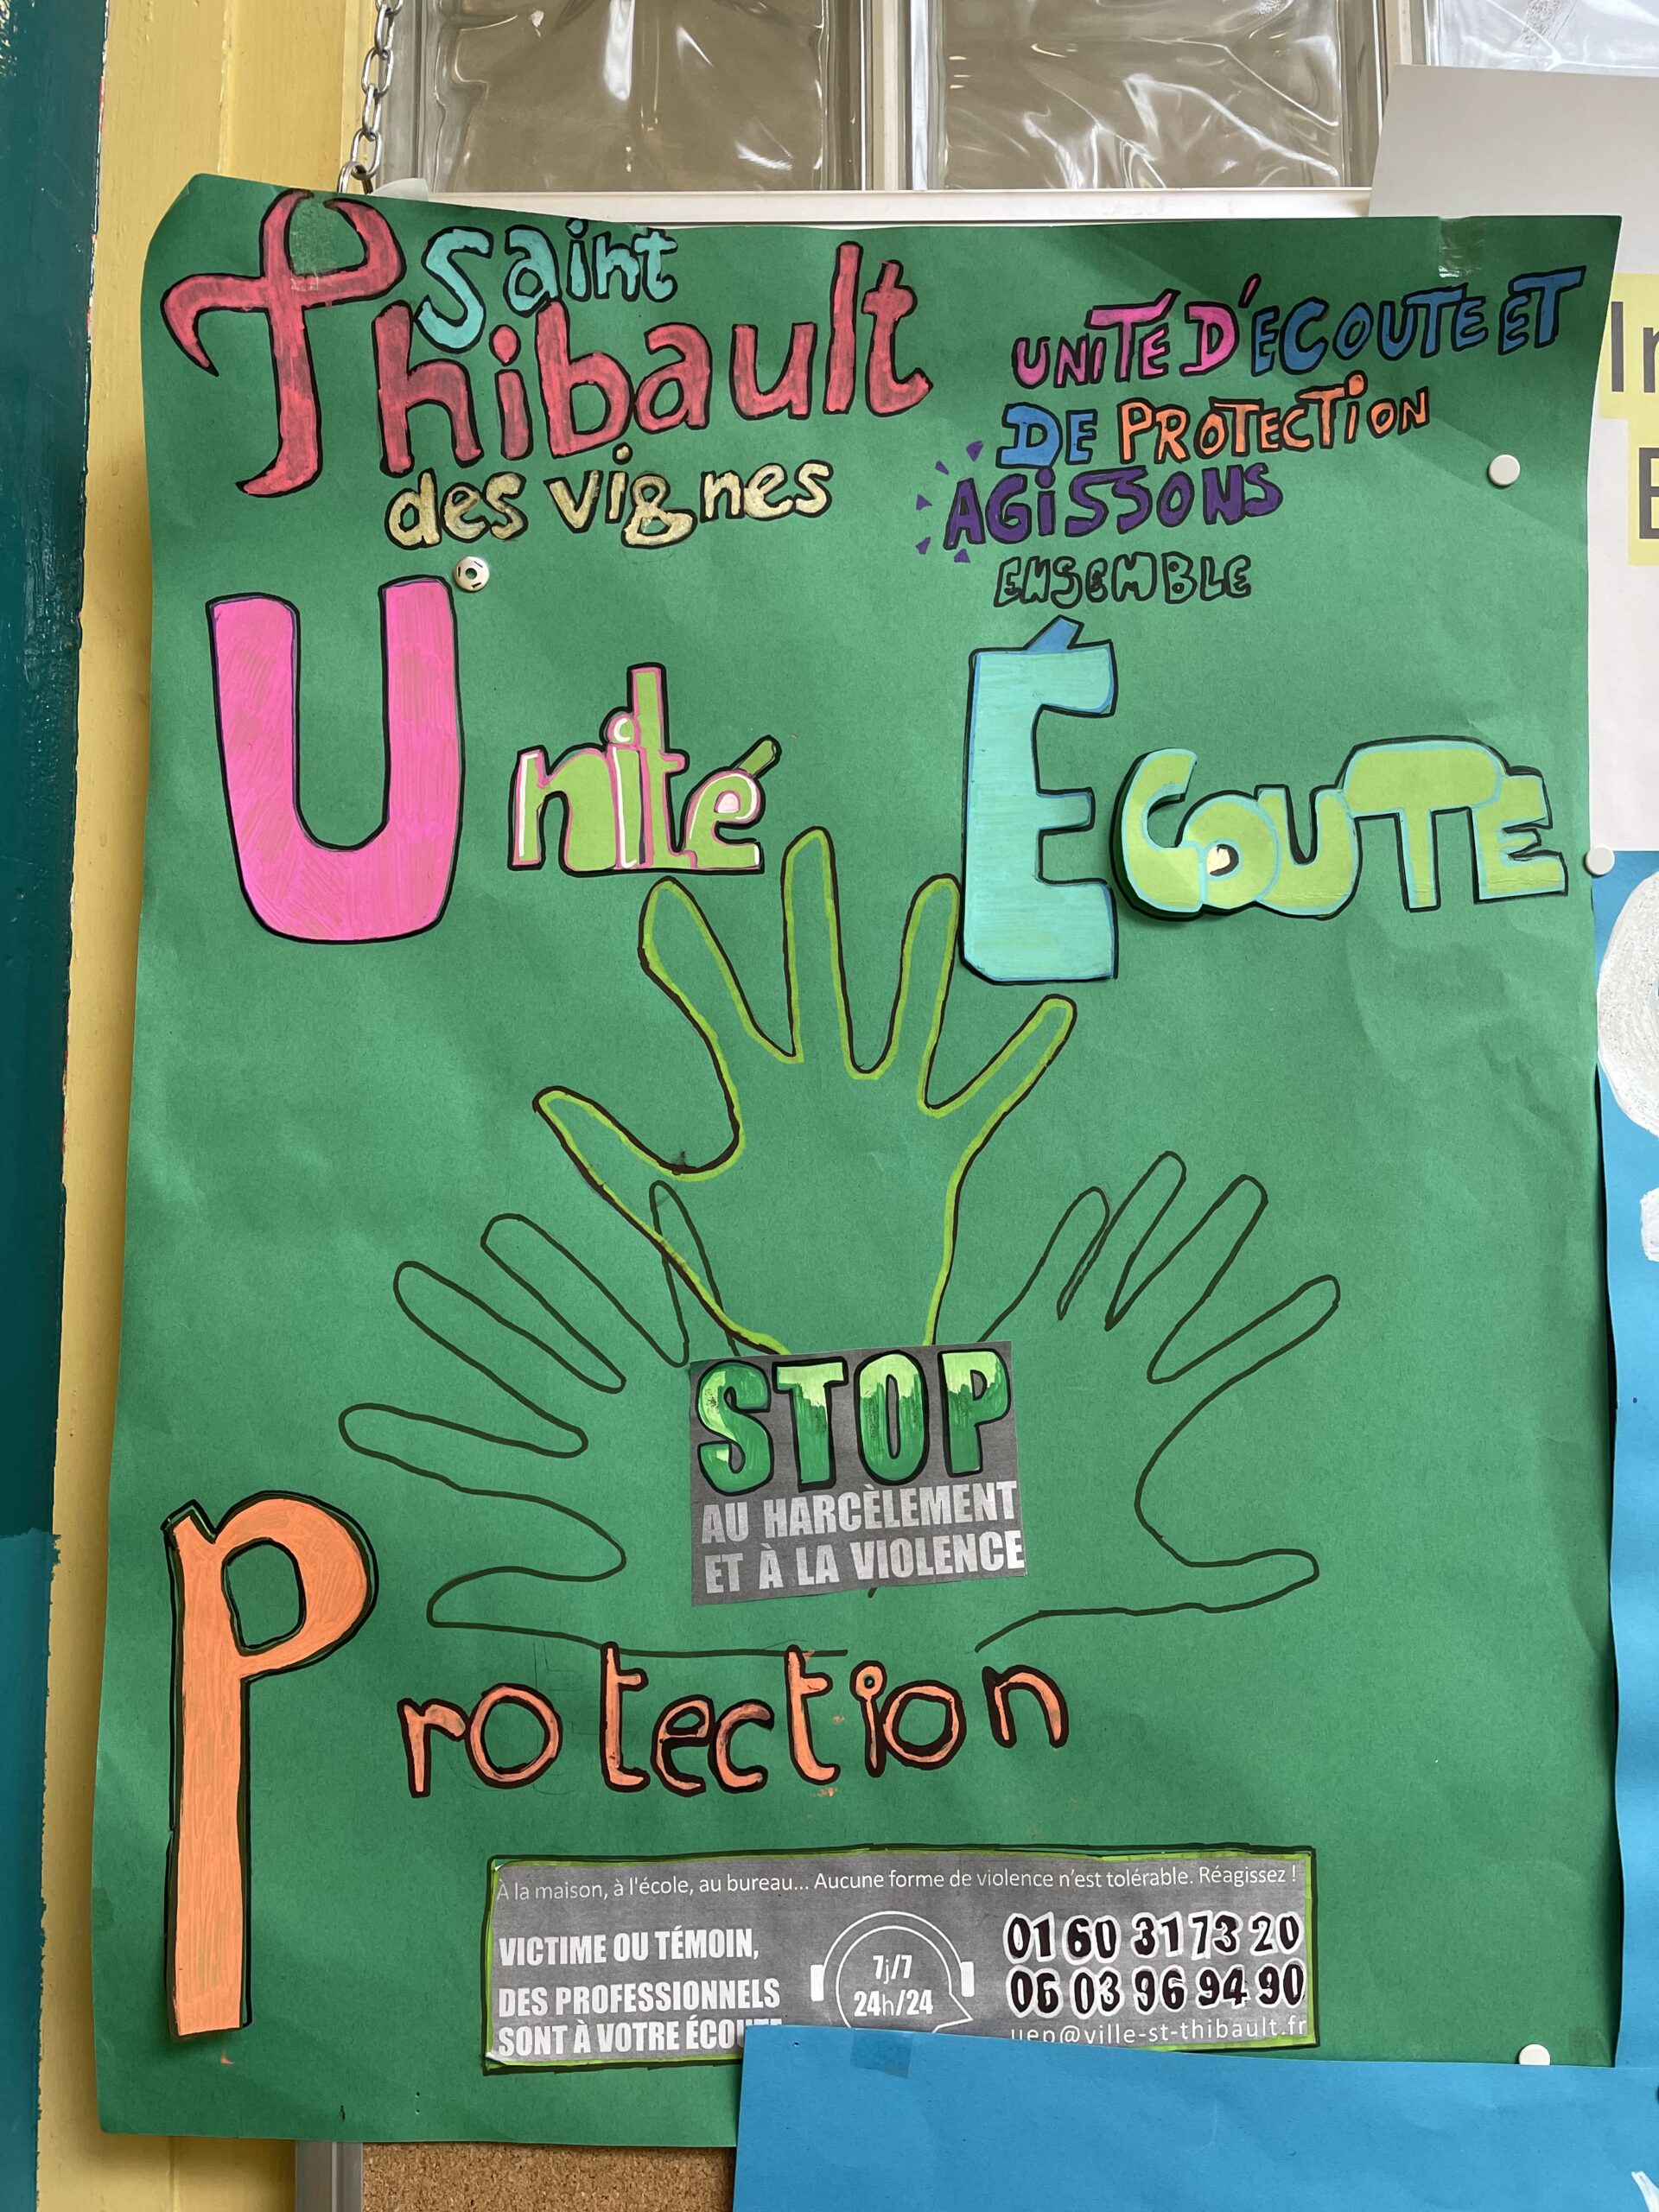 saint
Thibault
des vignes
UNITÉ D'ECOUTE ET
DE PROTECTION
AGISSONS
ENSEMBLE
Unité
ÉCOUTE
STOP
AU HARCÈLEMENT
ET À LA VIOLENCE
Protection
À la maison, à l'école, au bureau... Aucune forme de violence n'est tolérable. Réagissez !
VICTIME OU TÉMOIN,
DES PROFESSIONNELS
SONT À VOTRE ÉCOUTE
7j/7
24h/24
01 60 31 73 20
06 03 96 94 90
uep@ville-st-thibault.fr